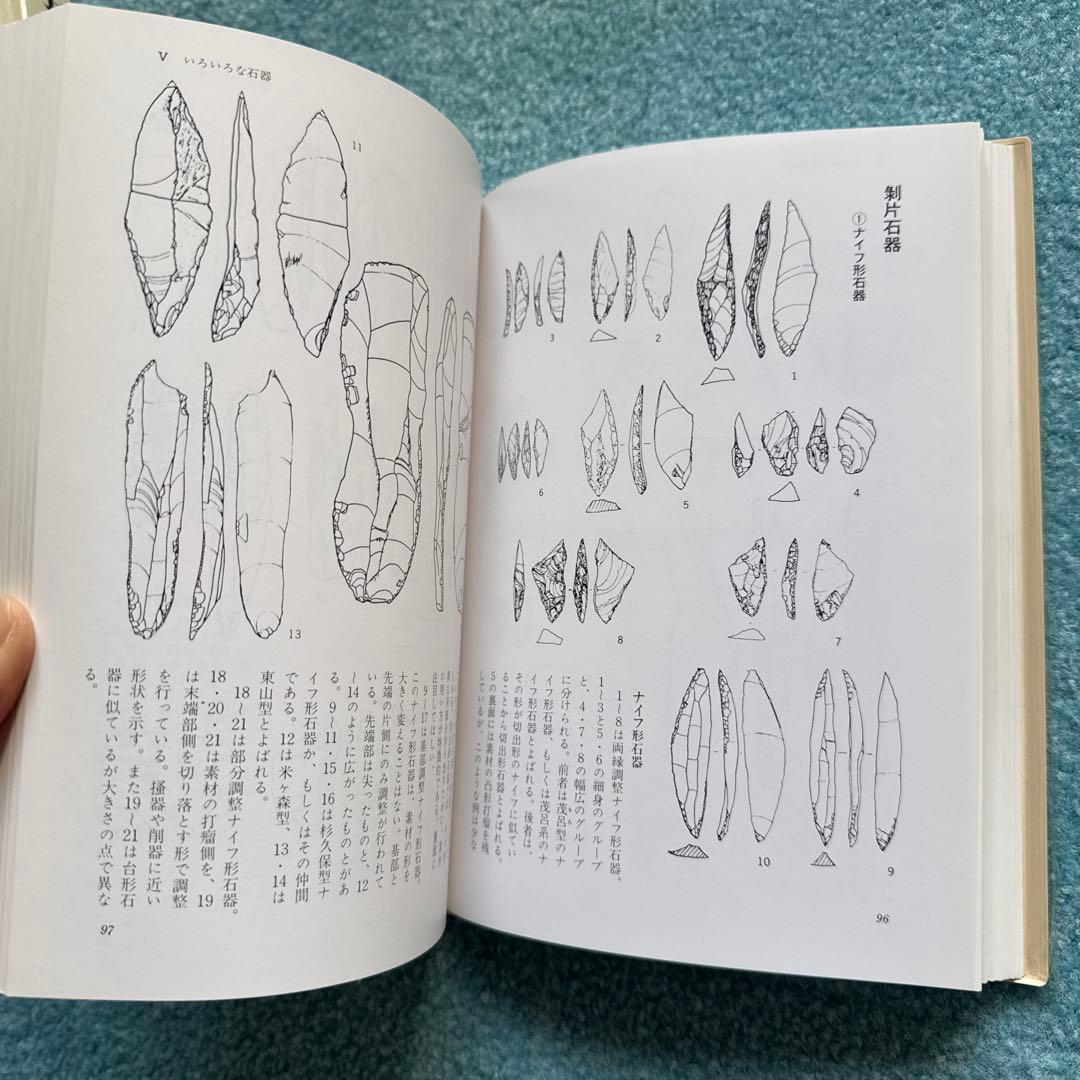 剝片石器
①ナイフ形石器
1
2
3
4
5
6
7
8
9
10
ナイフ形石器
1〜8は両縁調整ナイフ形石器。
1〜3と5・6の細身のグループ
と、4・7・8の幅広のグループ
に分けられる。前者は茂呂型のナ
イフ形石器、もしくは茂呂系のナ
イフ形石器とよばれる。後者は、
その形が切出形のナイフに似てい
ることから切出形石器とよばれる。
5の裏面には素材の凸形打瘤を残
しているが、このような例は少な
96
V いろいろな石器
11
13
注目してほしい。
9〜17は基部調整ナイフ形石器。
このナイフ形石器は、素材の形を
大きく変えることはない。基部と
先端の片側にのみ調整が行われて
いる。先端部は尖ったものと、12
〜14のように広がったものとがあ
る。9〜11・15・16は杉久保型ナ
イフ形石器か、もしくはその仲間
である。12は米ヶ森型、13・14は
東山型とよばれる。
18〜21は部分調整ナイフ形石器。
18・20・21は素材の打瘤側を、19
は末端部側を切り落とす形で調整
を行っている。掻器や削器に近い
形状を示す。また19〜21は台形石
器に似ているが大きさの点で異な
る。
97